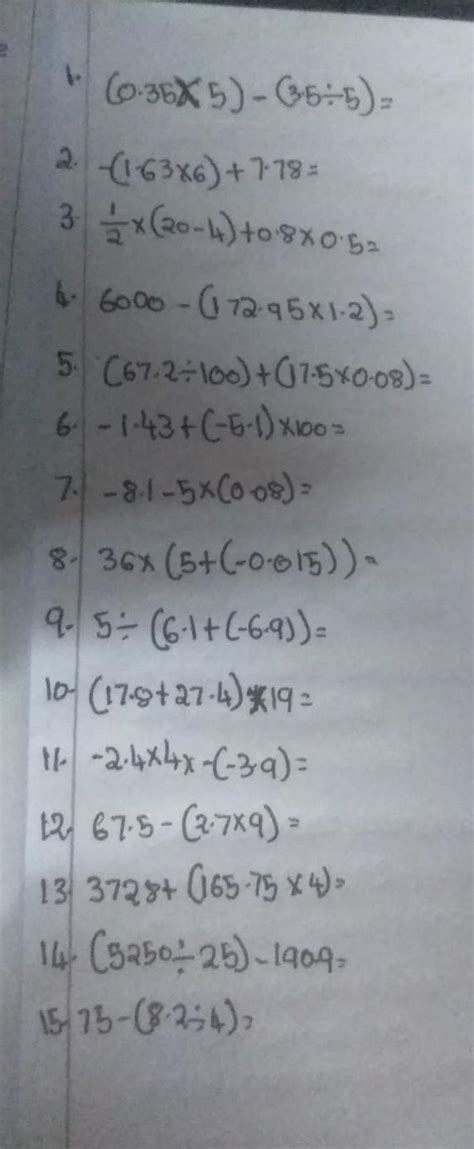 1. (0.35×5)-(3.5÷5)=
2. -(1.63×6)+7.78=
3. 1/2×(20-4)+0.8×0.5=
4. 6000-(172.95×1.2)=
5. (67.2÷100)+(17.5×0.08)=
6. -1.43+(-5.1)×100=
7. -8.1-5×(0.08)=
8. 36×(5+(-0.015))=
9. 5÷(6.1+(-6.9))=
10. (17.8+27.4)×19=
11. -2.4×4×-(-3.9)=
12. 67.5-(2.7×9)=
13. 3728+(165.75×4)=
14. (5250÷25)-1909=
15. 75-(8.2÷4)=